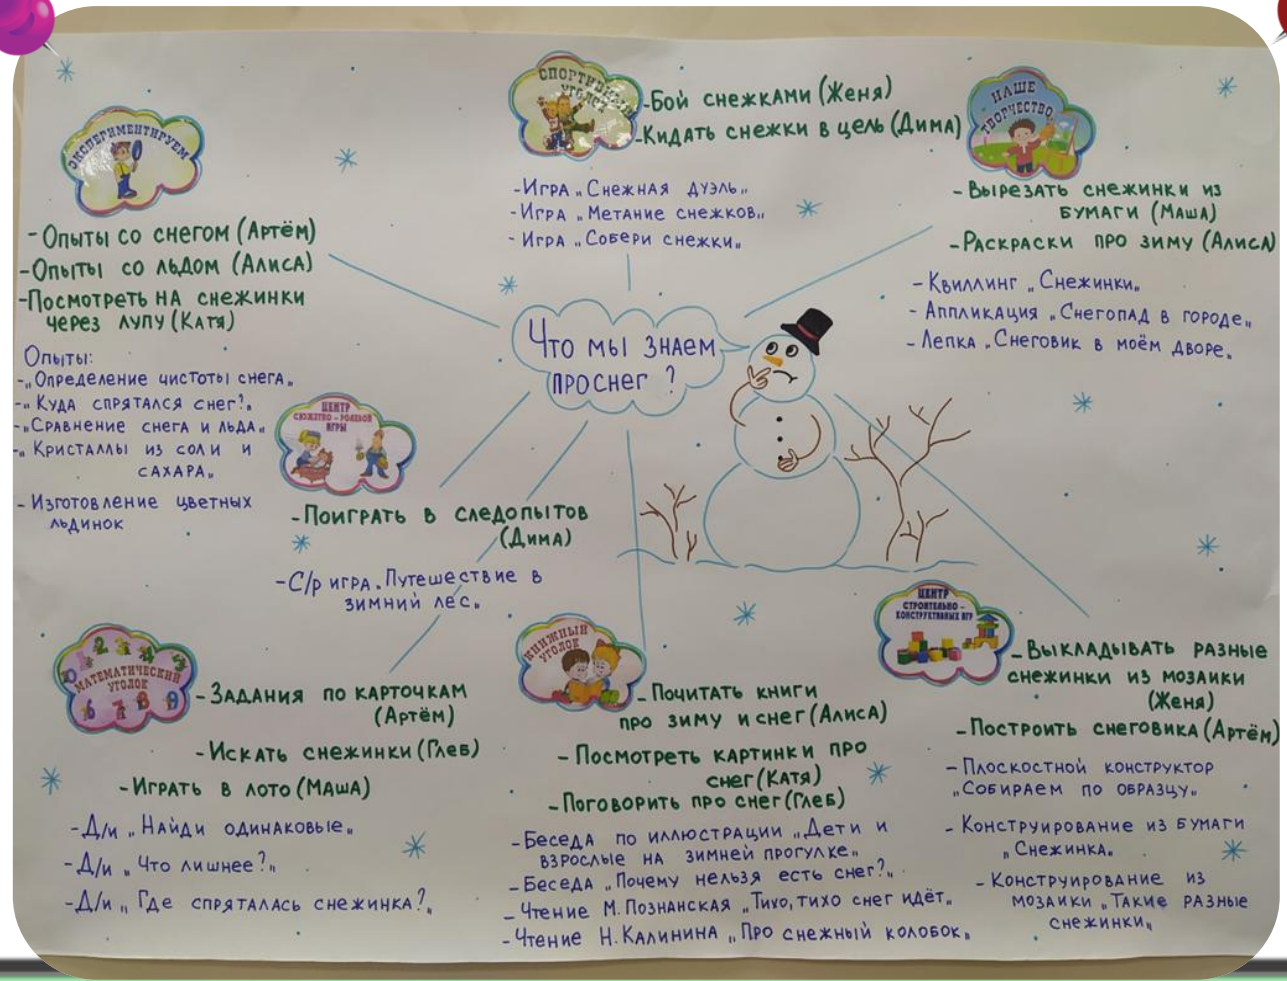 ЭКСПЕРИМЕНТИРУЕМ
- Опыты со снегом (Артём)
- Опыты со льдом (Алиса)
- Посмотреть на снежинки
через лупу (Катя)
Опыты:
- „Определение чистоты снега„
- „Куда спрятался снег?„
- „Сравнение снега и льда„
- „Кристаллы из соли и
сахара„
- Изготовление цветных
льдинок
СПОРТИВНЫЙ
УГОЛОК
- Бой снежками (Женя)
- Кидать снежки в цель (Дима)
- Игра „Снежная дуэль„
- Игра „Метание снежков„
- Игра „Собери снежки„
НАШЕ
ТВОРЧЕСТВО
- Вырезать снежинки из
бумаги (Маша)
- Раскраски про зиму (Алиса)
- Квиллинг „Снежинки„
- Аппликация „Снегопад в городе„
- Лепка „Снеговик в моём дворе„
Что мы знаем
про снег ?
ЦЕНТР
СЮЖЕТНО - РОЛЕВОЙ
ИГРЫ
- Поиграть в следопытов
(Дима)
- С/р игра „Путешествие в
зимний лес„
МАТЕМАТИЧЕСКИЙ
УГОЛОК
- Задания по карточкам
(Артём)
- Искать снежинки (Глеб)
- Играть в лото (Маша)
- Д/и „Найди одинаковые„
- Д/и „Что лишнее?„
- Д/и „Где спряталась снежинка?„
КНИЖНЫЙ
УГОЛОК
- Почитать книги
про зиму и снег (Алиса)
- Посмотреть картинки про
снег (Катя)
- Поговорить про снег (Глеб)
- Беседа по иллюстрации „Дети и
взрослые на зимней прогулке„
- Беседа „Почему нельзя есть снег?„
- Чтение М. Познанская „Тихо, тихо снег идёт„
- Чтение Н. Калинина „Про снежный колобок„
ЦЕНТР
СТРОИТЕЛЬНО -
КОНСТРУКТИВНЫХ ИГР
- Выкладывать разные
снежинки из мозаики
(Женя)
- Построить снеговика (Артём)
- Плоскостной конструктор
„Собираем по образцу„
- Конструирование из бумаги
„Снежинка„
- Конструирование из
мозаики „Такие разные
снежинки„